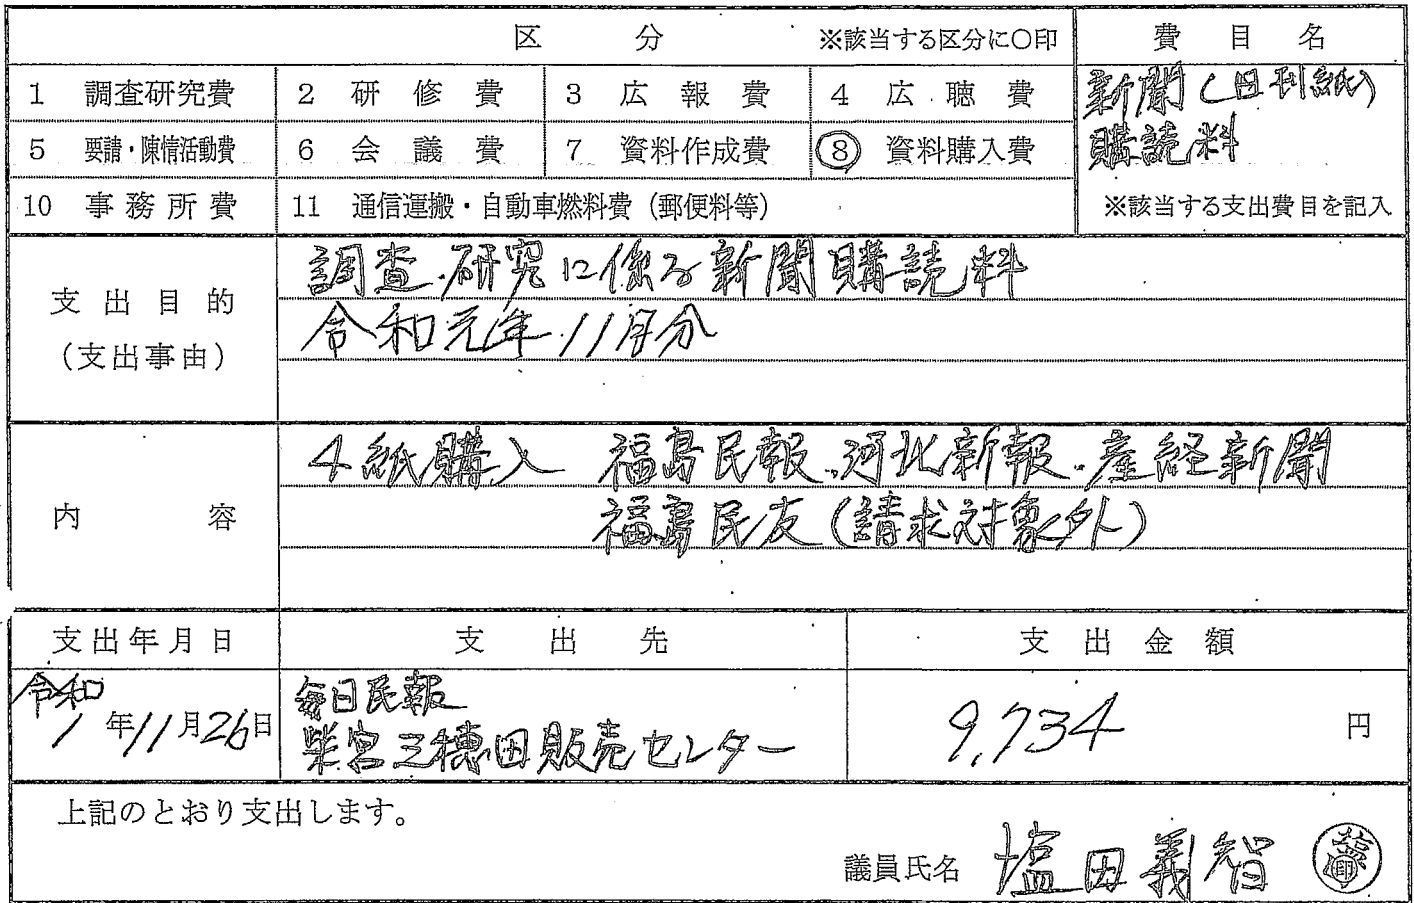 区分 ※該当する区分に〇印 費目名
1 調査研究費 2 研修費 3 広報費 4 広聴費 新聞(日刊紙)
5 要請・陳情活動費 6 会議費 7 資料作成費 ⑧ 資料購入費 購読料
10 事務所費 11 通信運搬・自動車燃料費(郵便料等) ※該当する支出費目を記入
調査・研究に係る新聞購読料
支出目的 令和元年11月分
(支出事由)
4紙購入 福島民報、河北新報、産経新聞
内容 福島民友(請求対象外)
支出年月日 支出先 支出金額
令和 毎日民報
1年11月26日 柴宮三穂田販売センター 9,734円
上記のとおり支出します。
議員氏名 塩田義智